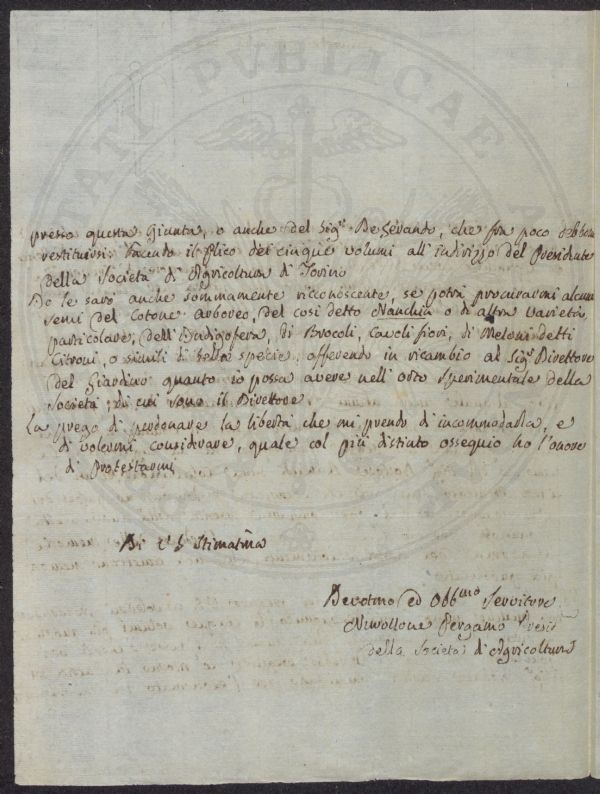 presso questa Giunta, o anche del Sig.r Bessevando, che fra poco debbono
restituirsi: facendo il plico dei cinque volumi all'indirizzo del Presidente
della Società di Agricoltura di Torino
Io le sarò anche sommamente riconoscente, se potrà procurarmi alcuni
semi del Cotone arboreo, del così detto Nanchin o di altra varietà
particolare, dell'Indigofera, di Brocoli, Cavoli fiori, di Meloni detti
Citroni, o simili di bella specie, offerendo in ricambio al Sig.r Direttore
del Giardino quanto io possa avere nell'orto sperimentale della
Società, di cui sono il Direttore.
La prego di perdonare la libertà che mi prendo d'incommodarla, e
di volermi considerare, quale col più distinto ossequio ho l'onore
di Protestarmi
Di V S Stimatma
Devotmo ed Obbmo Servitore
Nuvollone Pergamo Presid
della Società d'Agricoltura
PUBLICAE